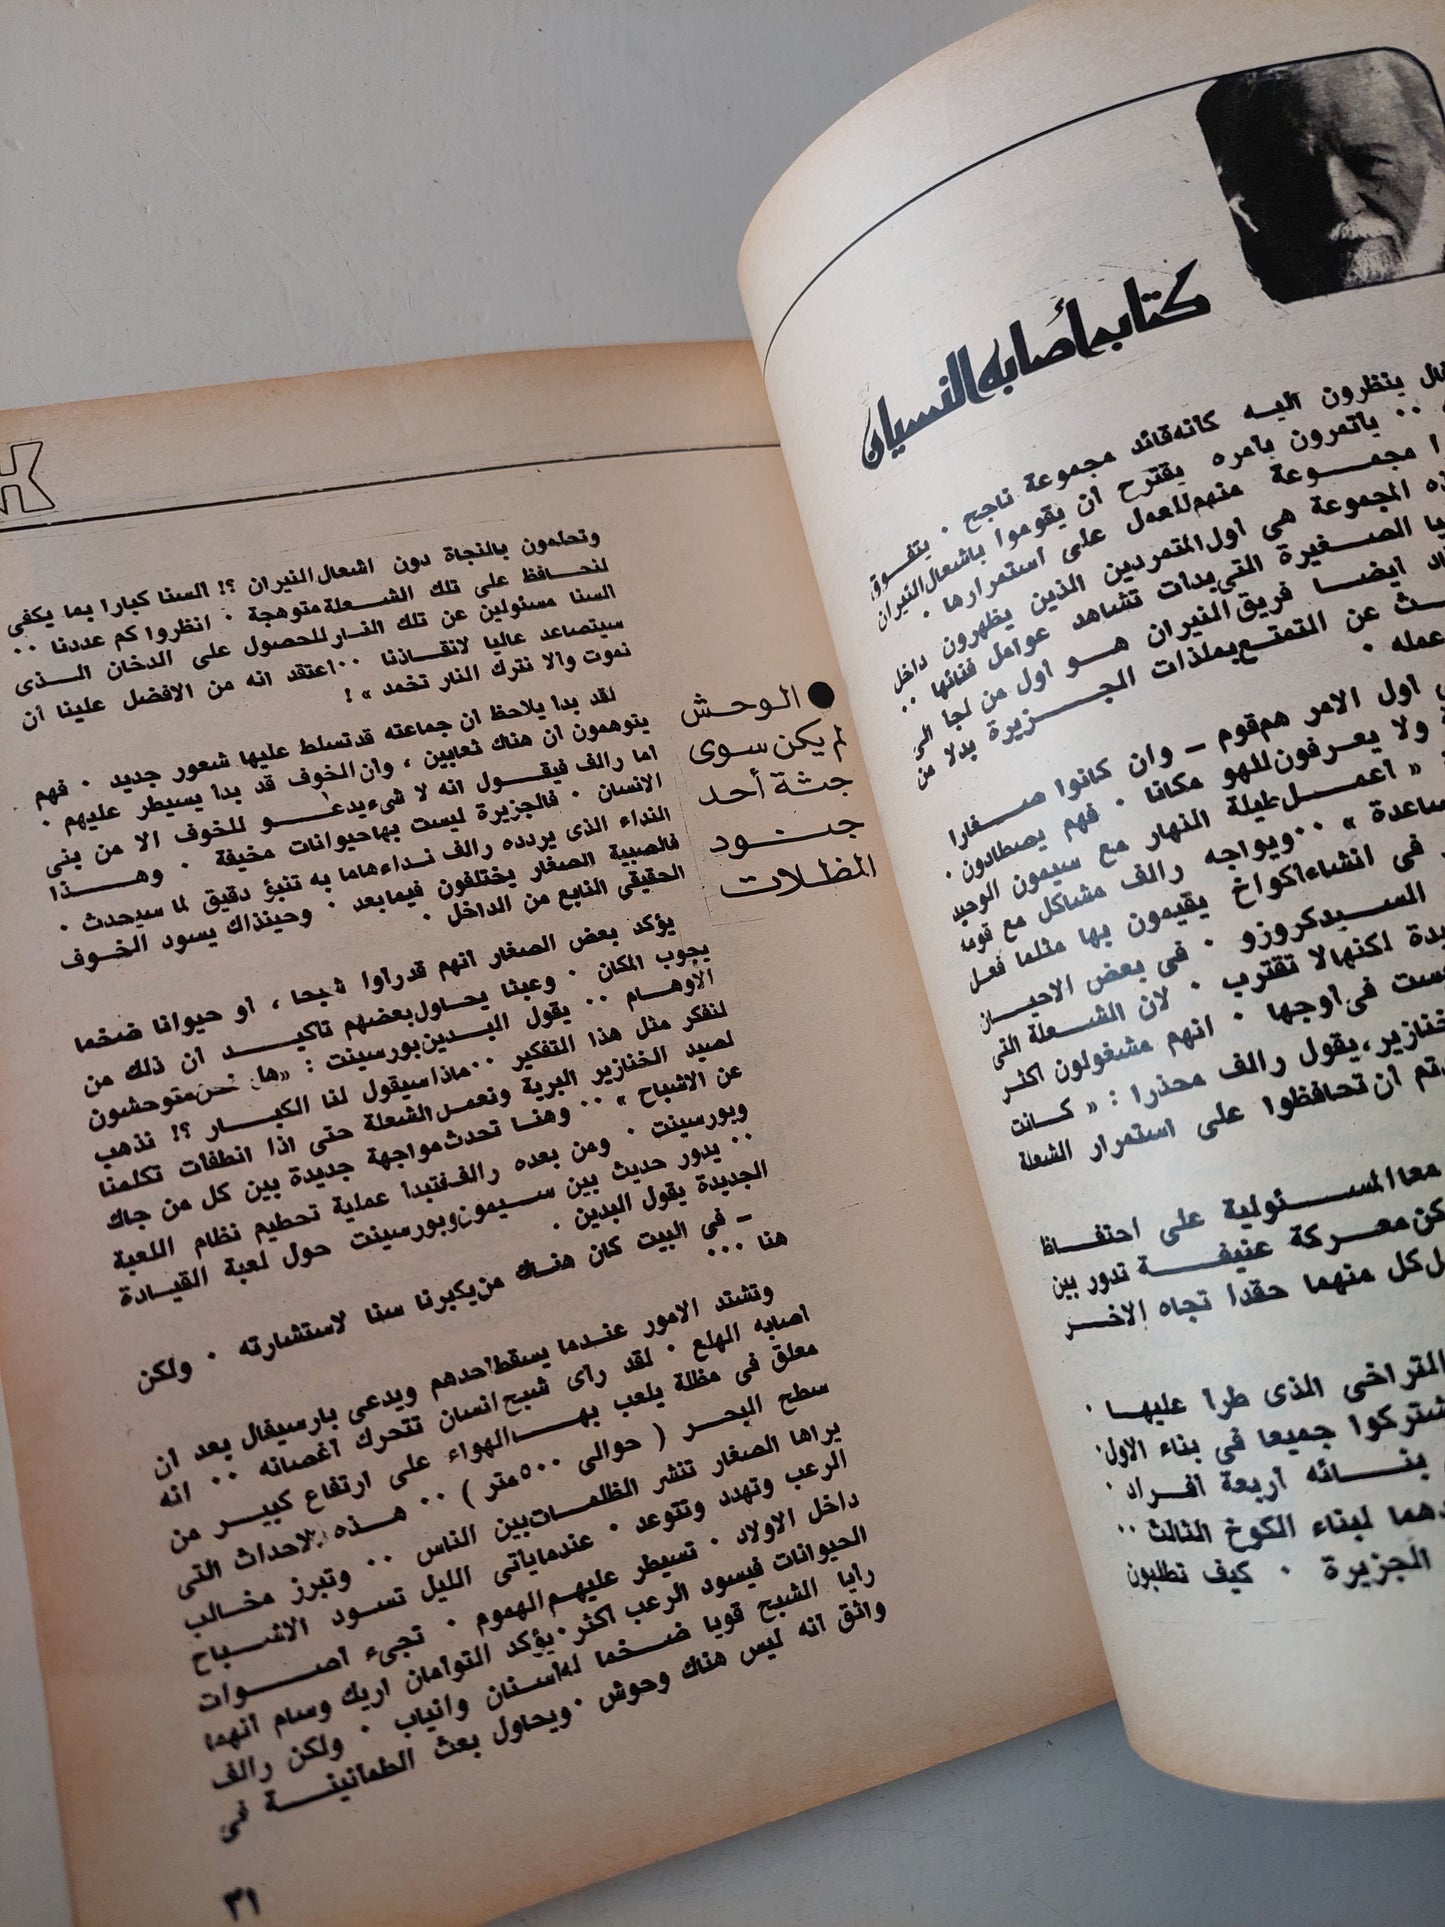 كتاب أصابه النسيان
ينظرون اليه كأنه قائد مجموعة ناجح . يتفوق
يأتمرون بأمره يقترح أن يقوموا باشعال النيران
مجموعة منهم للعمل على استمرارها .
المجموعة هى أول المتمردين الذين يظهرون داخل
الصغيرة التى بدأت تشاهد عوامل فنائها ..
أيضا فريق النيران هو أول من لجأ الى
عن التمتع بملذات الجزيرة بدلا من
عمله .
أول الامر هم قوم - وان كانوا صغارا
ولا يعرفون للهو مكانا . فهم يصطادون .
« أعمل طيلة النهار مع سيمون الوحيد
.. ويواجه رالف مشاكل مع قومه
فى انشاء أكواخ يقيمون بها مثلما فعل
السيد كروزو . فى بعض الاحيان
لكنها لا تقترب . لان الشعلة التى
فى أوجها . انهم مشغولون أكثر
يقول رالف محذرا : « كانت
أن تحافظوا على استمرار الشعلة
معا المسئولية على احتفاظ
معركة عنيفة تدور بين
كل منهما حقدا تجاه الاخر
التراخى الذى طرأ عليها .
جميعا فى بناء الاول .
بنائه أربعة أفراد .
لبناء الكوخ الثالث ..
الجزيرة . كيف تطلبون
وتحلمون بالنجاة دون اشعال النيران ؟! ألسنا كبارا بما يكفى
لنحافظ على تلك الشعلة متوهجة . انظروا كم عددنا ..
ألسنا مسئولين عن تلك النار للحصول على الدخان الذى
سيتصاعد عاليا لانقاذنا .. أعتقد انه من الافضل علينا أن
نموت وألا نترك النار تخمد » !
لقد بدأ يلاحظ أن جماعته قد تسلط عليها شعور جديد . فهم
يتوهمون أن هناك ثعابين ، وأن الخوف قد بدأ يسيطر عليهم .
أما رالف فيقول انه لا شىء يدعو للخوف الا من بنى
الانسان . فالجزيرة ليست بها حيوانات مخيفة . وهذا
النداء الذى يردده رالف نداء هاما به تنبؤ دقيق لما سيحدث .
فالصبية الصغار يختلفون فيما بعد . وحينذاك يسود الخوف
الحقيقى النابع من الداخل .
يؤكد بعض الصغار أنهم قد رأوا شبحا ، أو حيوانا ضخما
يجوب المكان . وعبثا يحاول بعضهم تأكيد أن ذلك من
الأوهام .. يقول البدين بورسينت : «هل نحن متوحشون
لنفكر مثل هذا التفكير .. ماذا سيقول لنا الكبار ؟! نذهب
لصيد الخنازير البرية ونعمل الشعلة حتى اذا انطفأت تكلمنا
عن الاشباح » .. وهنا تحدث مواجهة جديدة بين كل من جاك
وبورسينت . ومن بعده رالف فتبدأ عملية تحطيم نظام اللعبة
.. يدور حديث بين سيمون وبورسينت حول لعبة القيادة
الجديدة يقول البدين .
- فى البيت كان هناك من يكبرنا سنا لاستشارته . ولكن
هنا ...
وتشتد الامور عندما يسقط أحدهم ويدعى بارسيفال بعد أن
أصابه الهلع . لقد رأى شبح انسان تتحرك أغصانه .. انه
معلق فى مظلة يلعب بها الهواء على ارتفاع كبير من
سطح البحر ( حوالى ٥٠٠ متر ) .. هذه الاحداث التى
يراها الصغار تنشر الظلمات بين الناس .. وتبرز مخالب
الرعب وتهدد وتتوعد . عندما يأتى الليل تسود الاشباح
داخل الاولاد . تسيطر عليهم الهموم . تجىء أصوات
الحيوانات فيسود الرعب أكثر . يؤكد التوأمان اريك وسام أنهما
رأيا الشبح قويا ضخما له أسنان وأنياب . ولكن رالف
واثق أنه ليس هناك وحوش . ويحاول بعث الطمأنينة فى
● الوحش
لم يكن سوى
جثة أحد
جنود
المظلات
٣١